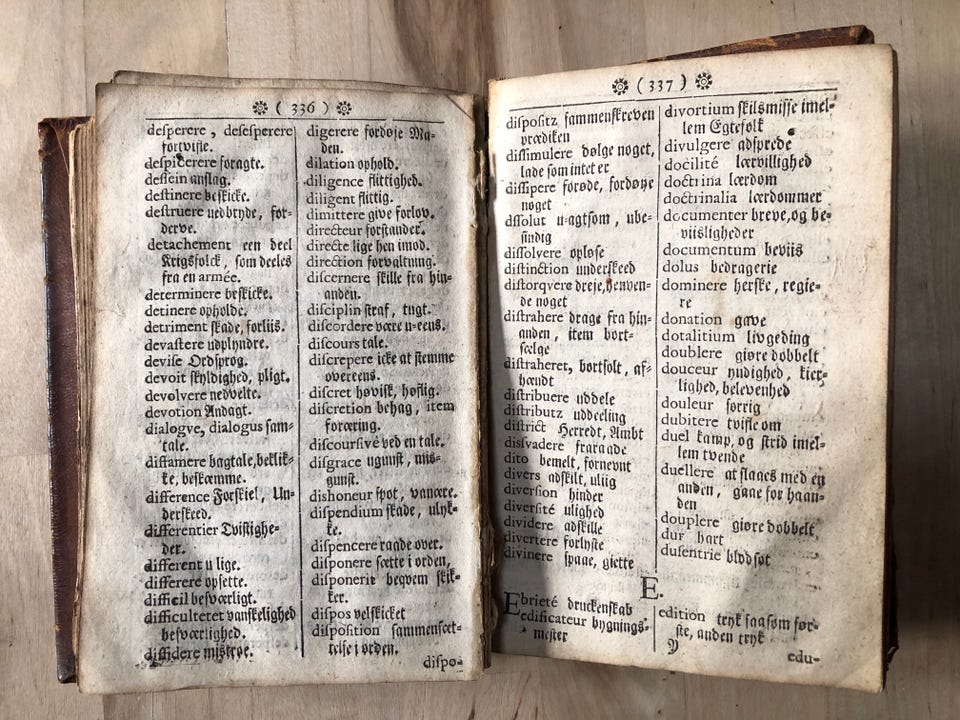 ( 336 )
desperere, desesperere
fortvifle.
despicerere foragte.
dessein anslag.
destinere beskicke.
destruere nedbryde, for-
derve.
detachement een deel
Krigsfolck, som deeles
fra en armée.
determinere beskicke.
detinere opholde.
detriment skade, forliis.
devastere udplyndre.
devise Ordsprog.
devoit skyldighed, pligt.
devolvere nedvelte.
devotion Andagt.
dialogve, dialogus sam-
tale.
diffamere bagtale, beklik-
ke, beskæmme.
difference Forskiel, Un-
derskeed.
differentier Tvistighe-
der.
different u lige.
differere opsette.
difficil besværligt.
difficultetet vanskelighed
besværlighed.
diffidere mistroe.
digerere fordøje Ma-
den.
dilation ophold.
diligence flittighed.
diligent flittig.
dimittere give forlov.
directeur forstander.
directe lige hen imod.
direction forvaltning.
discernere skille fra hin-
anden.
disciplin straf, tugt.
discordere være u-eens.
discours tale.
discrepere icke at stemme
overeens.
discret høvisk, høflig.
discretion behag, item
foræring.
discoursivé ved en tale.
disgrace ugunst, mis-
gunst.
dishoneur spot, vanære.
dispendium skade, ulyk-
ke.
dispencere raade over.
disponere sætte i orden,
disponerit beqvem skik-
ker.
dispos velskicket
disposition sammensæt-
telse i orden.
dispo-
( 337 )
dispositz sammenskreven
prædiken
dissimulere dølge noget,
lade som intet er
dissipere forøde, fordøye
noget
dssolut u-agtsom, ube-
sindig
dissolvere opløse
distinction underskeed
distorqvere dreje, henven-
de noget
distrahere drage fra hin-
anden, item bort-
sælge
distraheret, bortsolt, af-
hændt
distribuere uddele
distributz uddeeling
district Herredt, Ambt
dissvadere fraraade
dito bemelt, fornevnt
divers adskilt, uliig
diversion hinder
diversité ulighed
dividere adskille
divertere forlyste
divinere spaae, giette
divortium skilsmisse imel-
lem Egtefolk
divulgere adsprede
docilité lærvillighed
doctrina lærdom
doctrinalia lærdommer
documenter breve, og be-
viisligheder
documentum beviis
dolus bedragerie
dominere herske, regie-
re
donation gave
dotalitium livgeding
doublere giøre dobbelt
douceur yndighed, kier-
lighed, belevenhed
douleur sorrig
dubitere tvifle om
duel kamp, og strid imel-
lem tvende
duellere at slaaes med en
anden, gaae for haan-
den
douplere giøre dobbelt
dur hart
dusentrie blodsot
E.
Ebrieté druckenskab
edificateur bygnings-
mester
edition tryk saasom før-
ste, anden tryk
Y
edu-